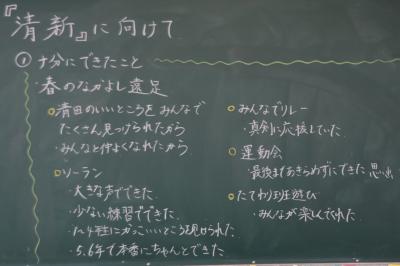 『清新』に向けて
① 十分にできたこと
・春のなかよし遠足
○清田のいいところをみんなで
たくさん見つけられたから
・みんなと仲よくなれたから
○ソーラン
・大きな声でできた
・少ない練習でできた
・1~4年生にかっこいいところ見せられた
・5.6年で本番にちゃんとできた
○みんなでリレー
・真剣に応援していた
○運動会
・最後まであきらめずにできた 思い出
○たてわり班遊び
・みんなが楽しんでくれた